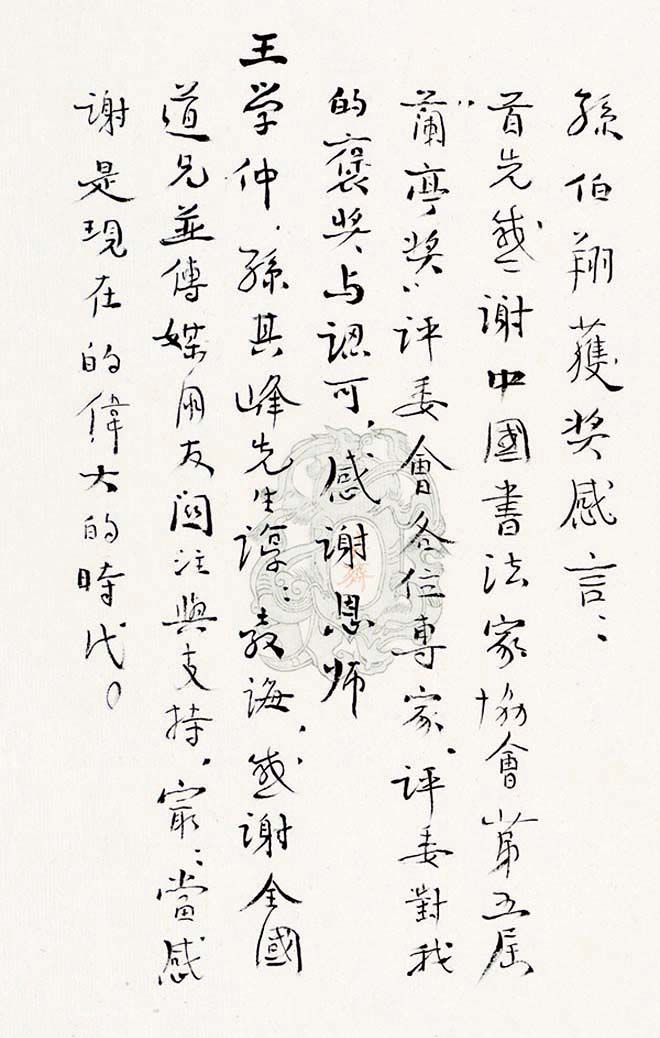 孫伯翔獲奖感言：
首先感謝中國書法家協會第五届
“蘭亭奖”评委會各位專家、评委對我
的褒奖与認可，感謝恩师
王学仲、孫其峰先生諄：教诲，感謝全國
道兄並傳媒朋友關注與支持，最：當感
謝是現在的偉大的時代。